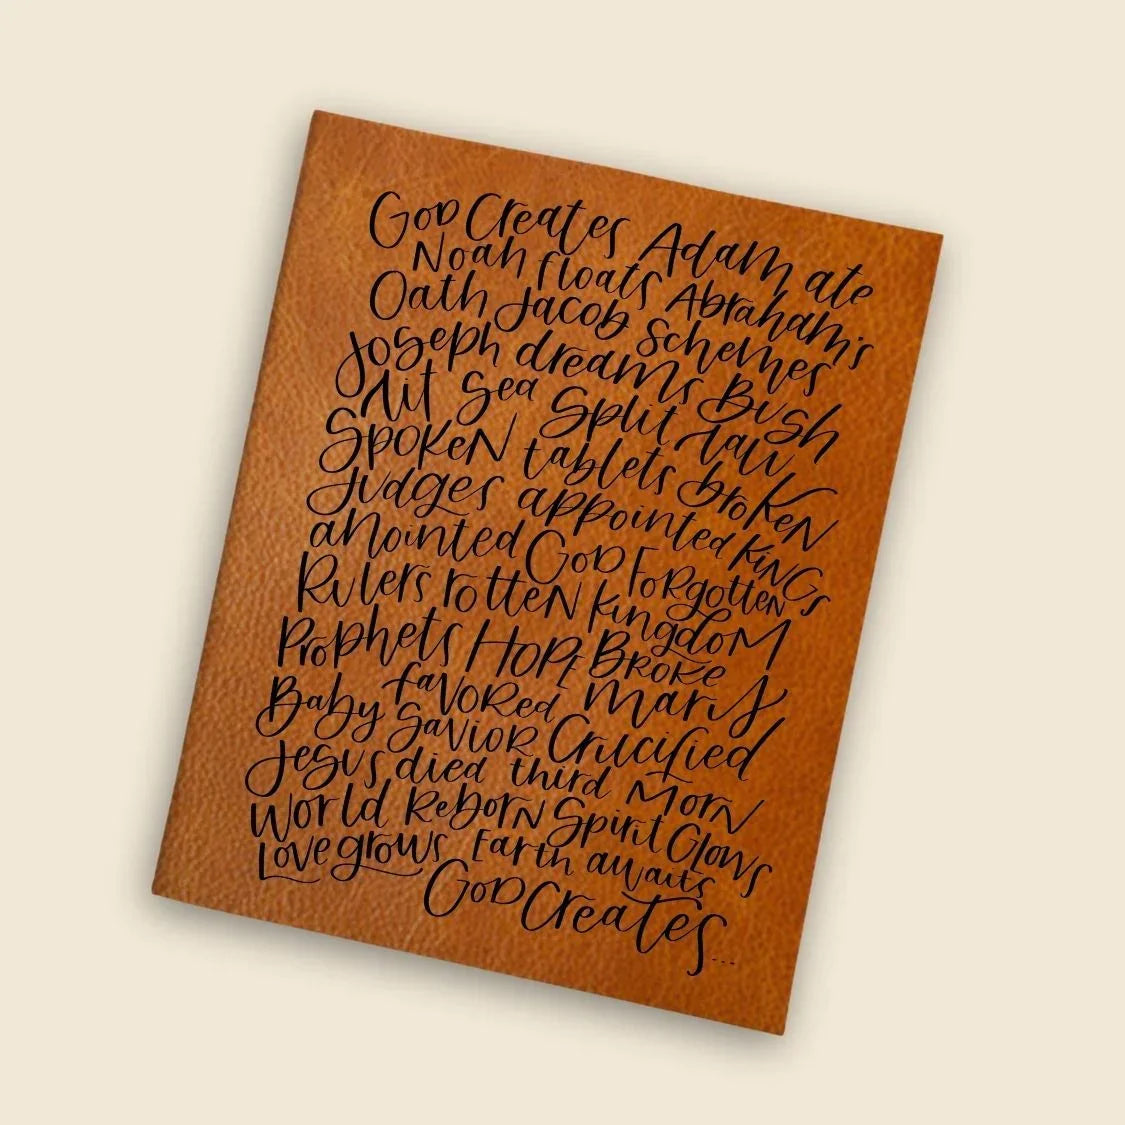 God Creates Adam ate
Noah floats Abraham's
Oath Jacob Schemes
Joseph dreams Bush
Lit Sea Split Law
Spoken tablets broken
Judges appointed kings
anointed God Forgotten
Rulers rotten kingdom
Prophets HOPE Broke
favored Mary
Baby Savior Crucified
Jesus died third Morn
World Reborn Spirit Glows
Love grows Earth awaits
God Creates...